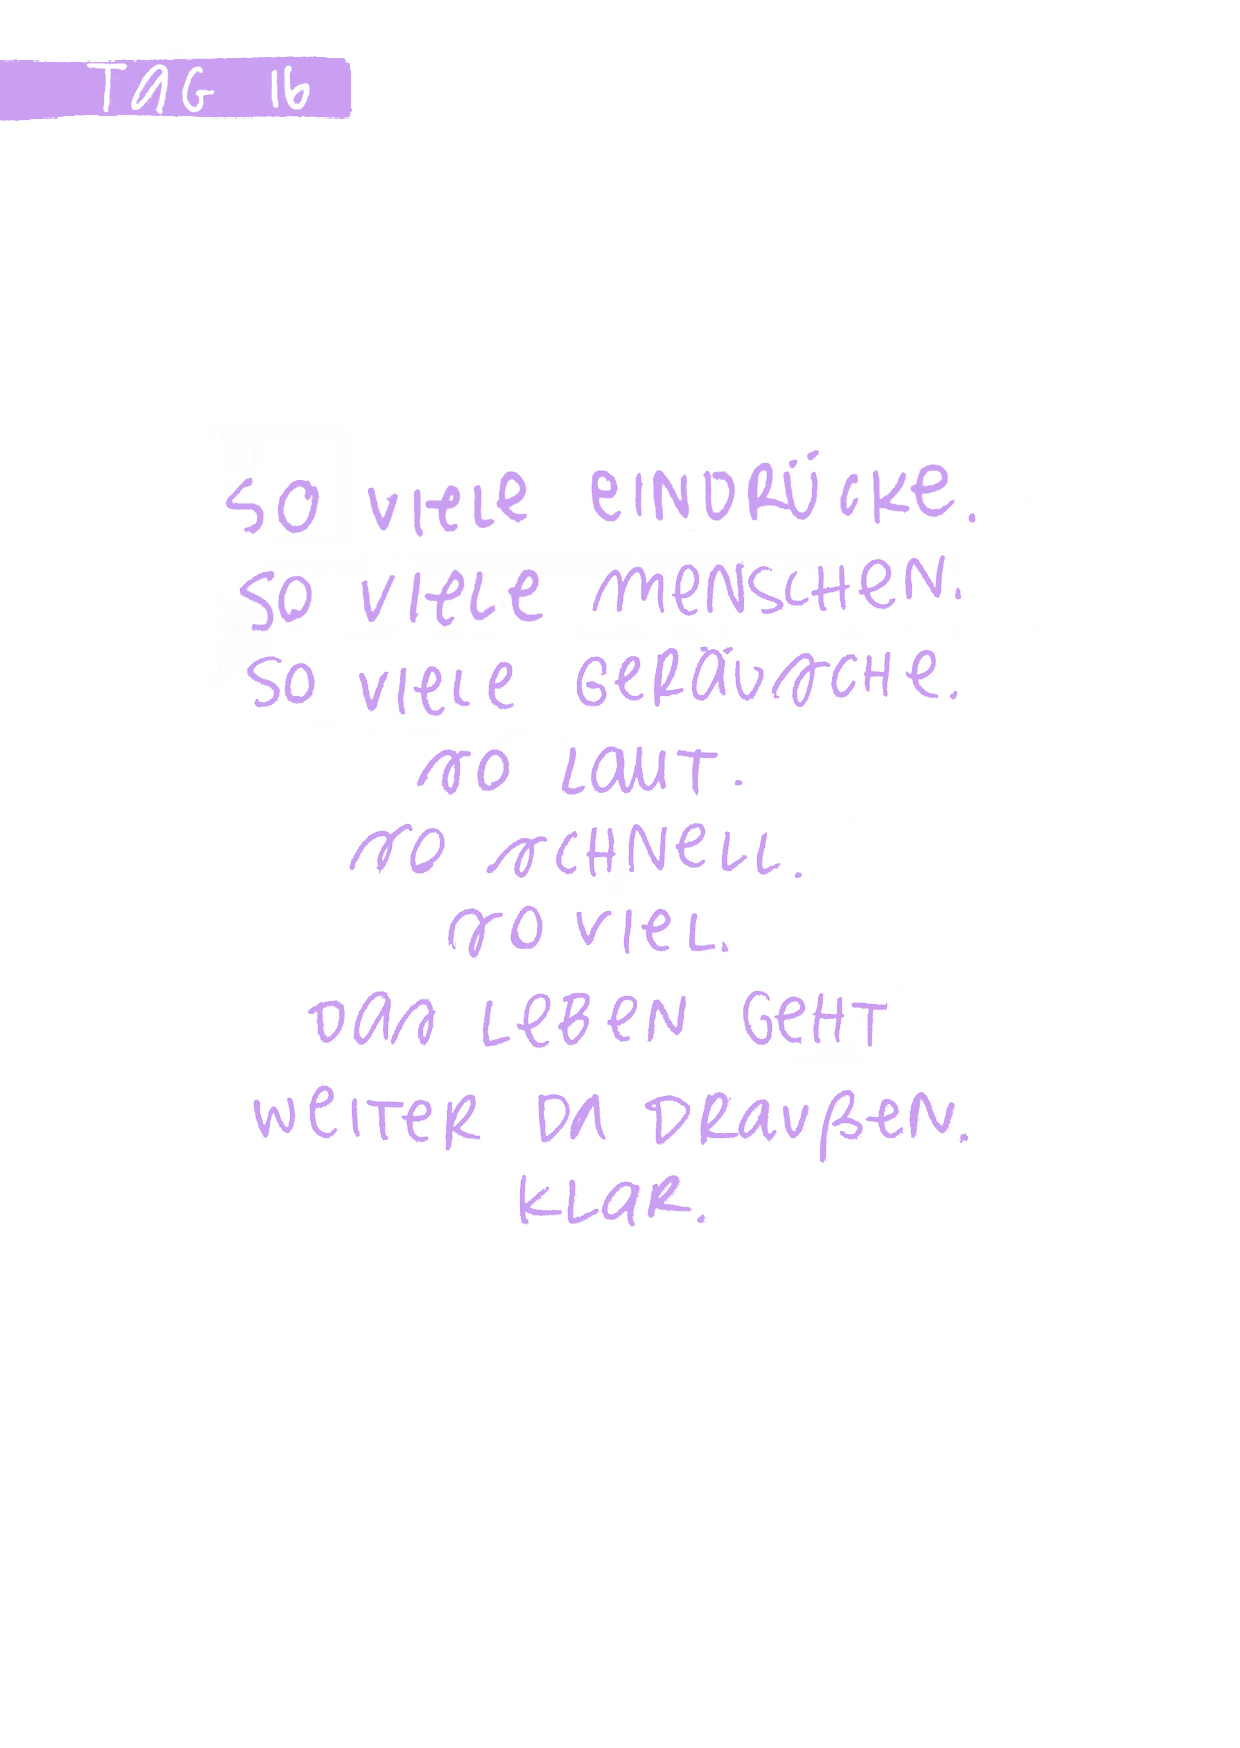 TAG 16
SO VIELE EINDRÜCKE.
SO VIELE MENSCHEN.
SO VIELE GERÄUSCHE.
SO LAUT.
SO SCHNELL.
SO VIEL.
DAS LEBEN GEHT
WEITER DA DRAUßEN.
KLAR.